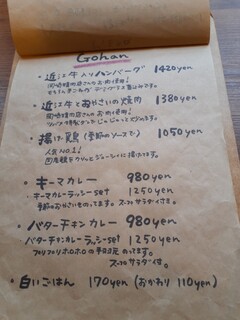 Gohan
・近江牛入りハンバーグ 1420yen
・近江牛とおやさいの焼肉 1380yen
・揚げ鶏(季節のソースで) 1050yen
人気NO.1!
・キーマカレー 980yen
・キーマカレーラッシーset 1250yen
季節のおやさいものってます。スープサラダ付き。
・バターチキンカレー 980yen
バターチキンカレーラッシーset 1250yen
のってます。
スープサラダ付。
・白いごはん 170yen (おかわり 110yen)